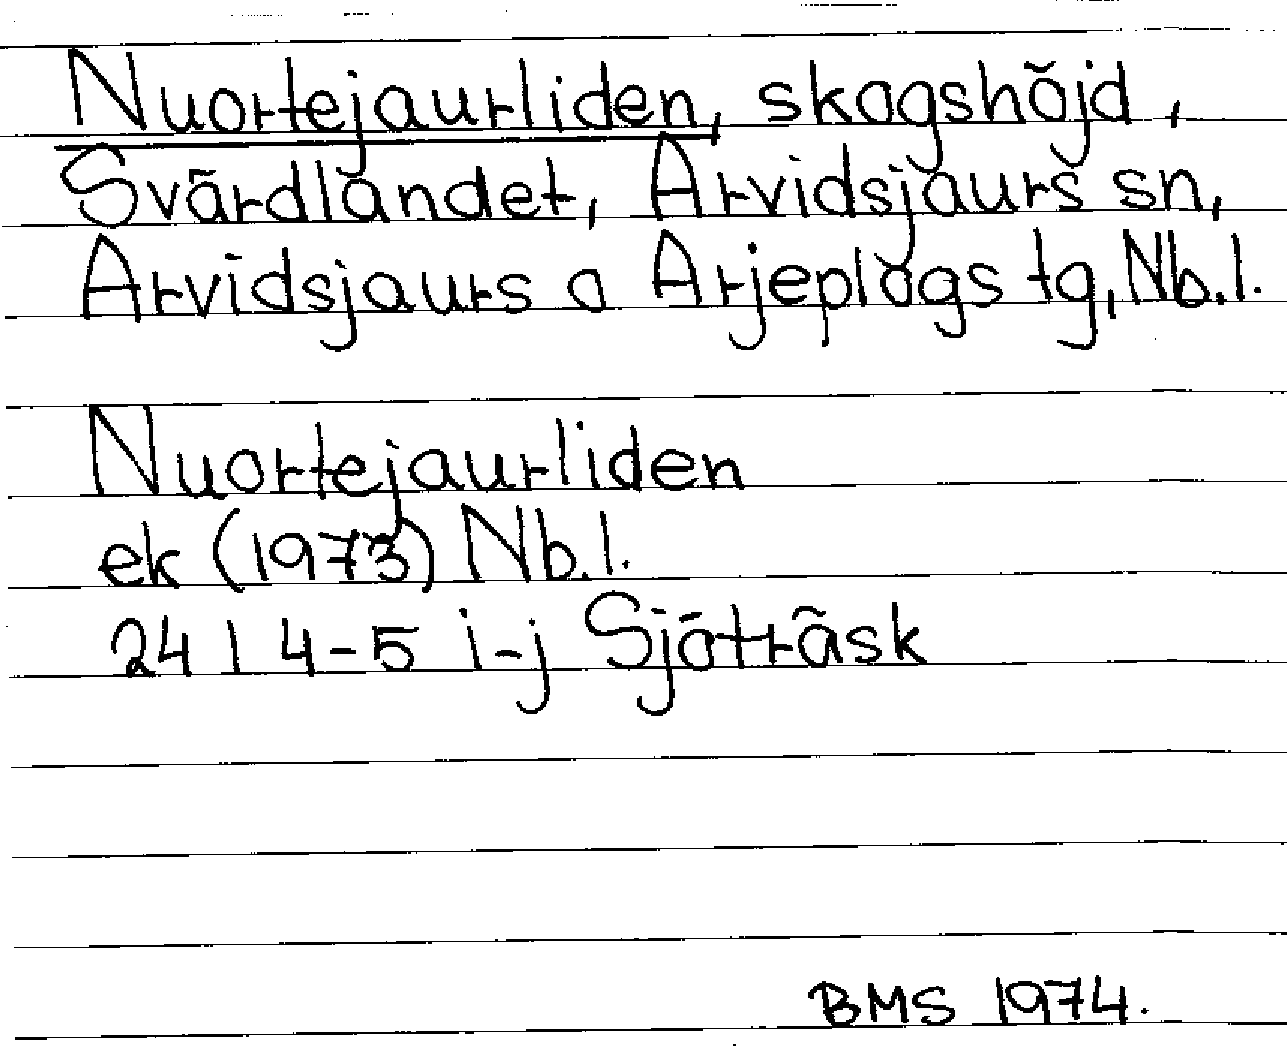 Nuortejaurliden, skogshöjd,
Svärdlandet, Arvidsjaurs sn,
Arvidsjaurs o Arjeplogs tg, Nb.l.
Nuortejaurliden
ek (1973) Nb.l.
24 I 4-5 i-j Sjöträsk
BMS 1974.